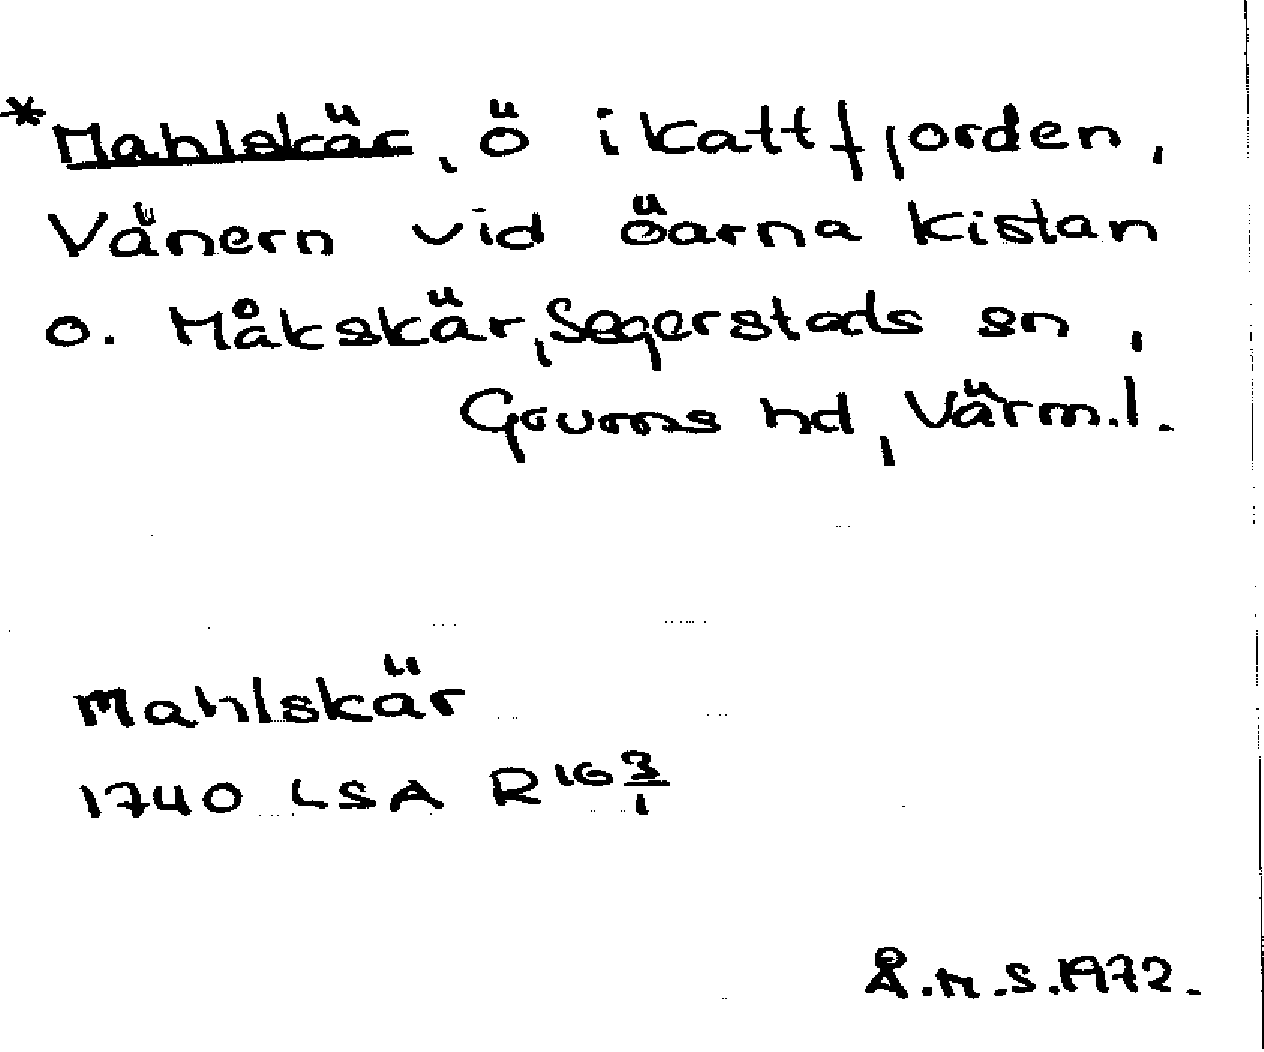 *Mahlskär, ö i Kattfjorden,
Vänern vid öarna Kistan
o. Måkskär, Segerstads sn,
Grums hd, Värml.
Mahlskär
1740 LSA R16 3/1
Å.M.S.1972.